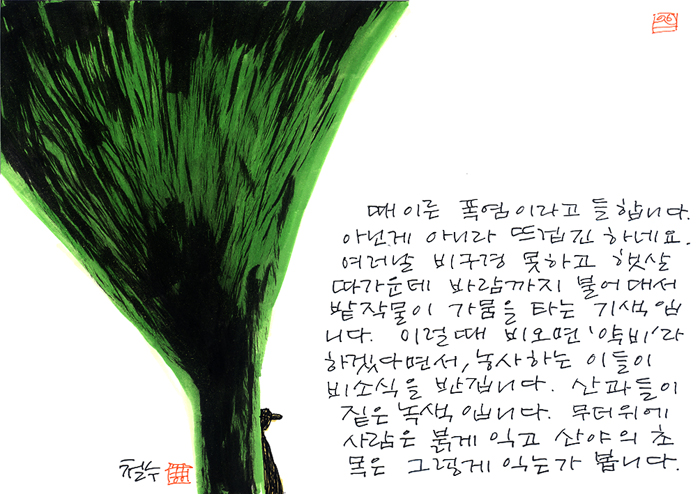 때이른 폭염이라고 들합니다.
아닌게 아니라 뜨겁긴 하네요.
여러날 비구경 못하고 햇살
따가운데 바람까지 불어대서
밭작물이 가뭄을 타는 기색입
니다. 이럴때 비오면 '약비'라
하겠다면서, 농사하는 이들이
비소식을 반깁니다. 산과들이
짙은 녹색입니다. 무더위에
사람은 붉게 익고 산야의 초
목은 그렇게 익는가 봅니다.
철수